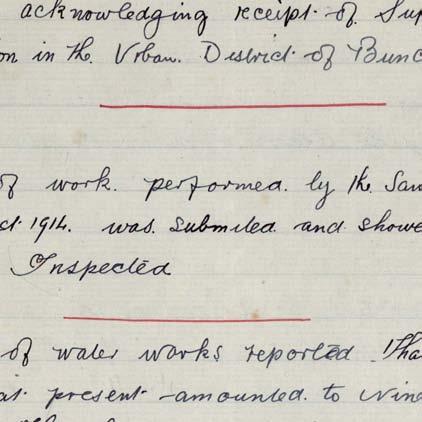 acknowledging receipt of Sup
on in the Urban District of Bunc
of work performed by the San
1914. was submited and showe
Inspected
of water works reported tha
at present amounted to Nine